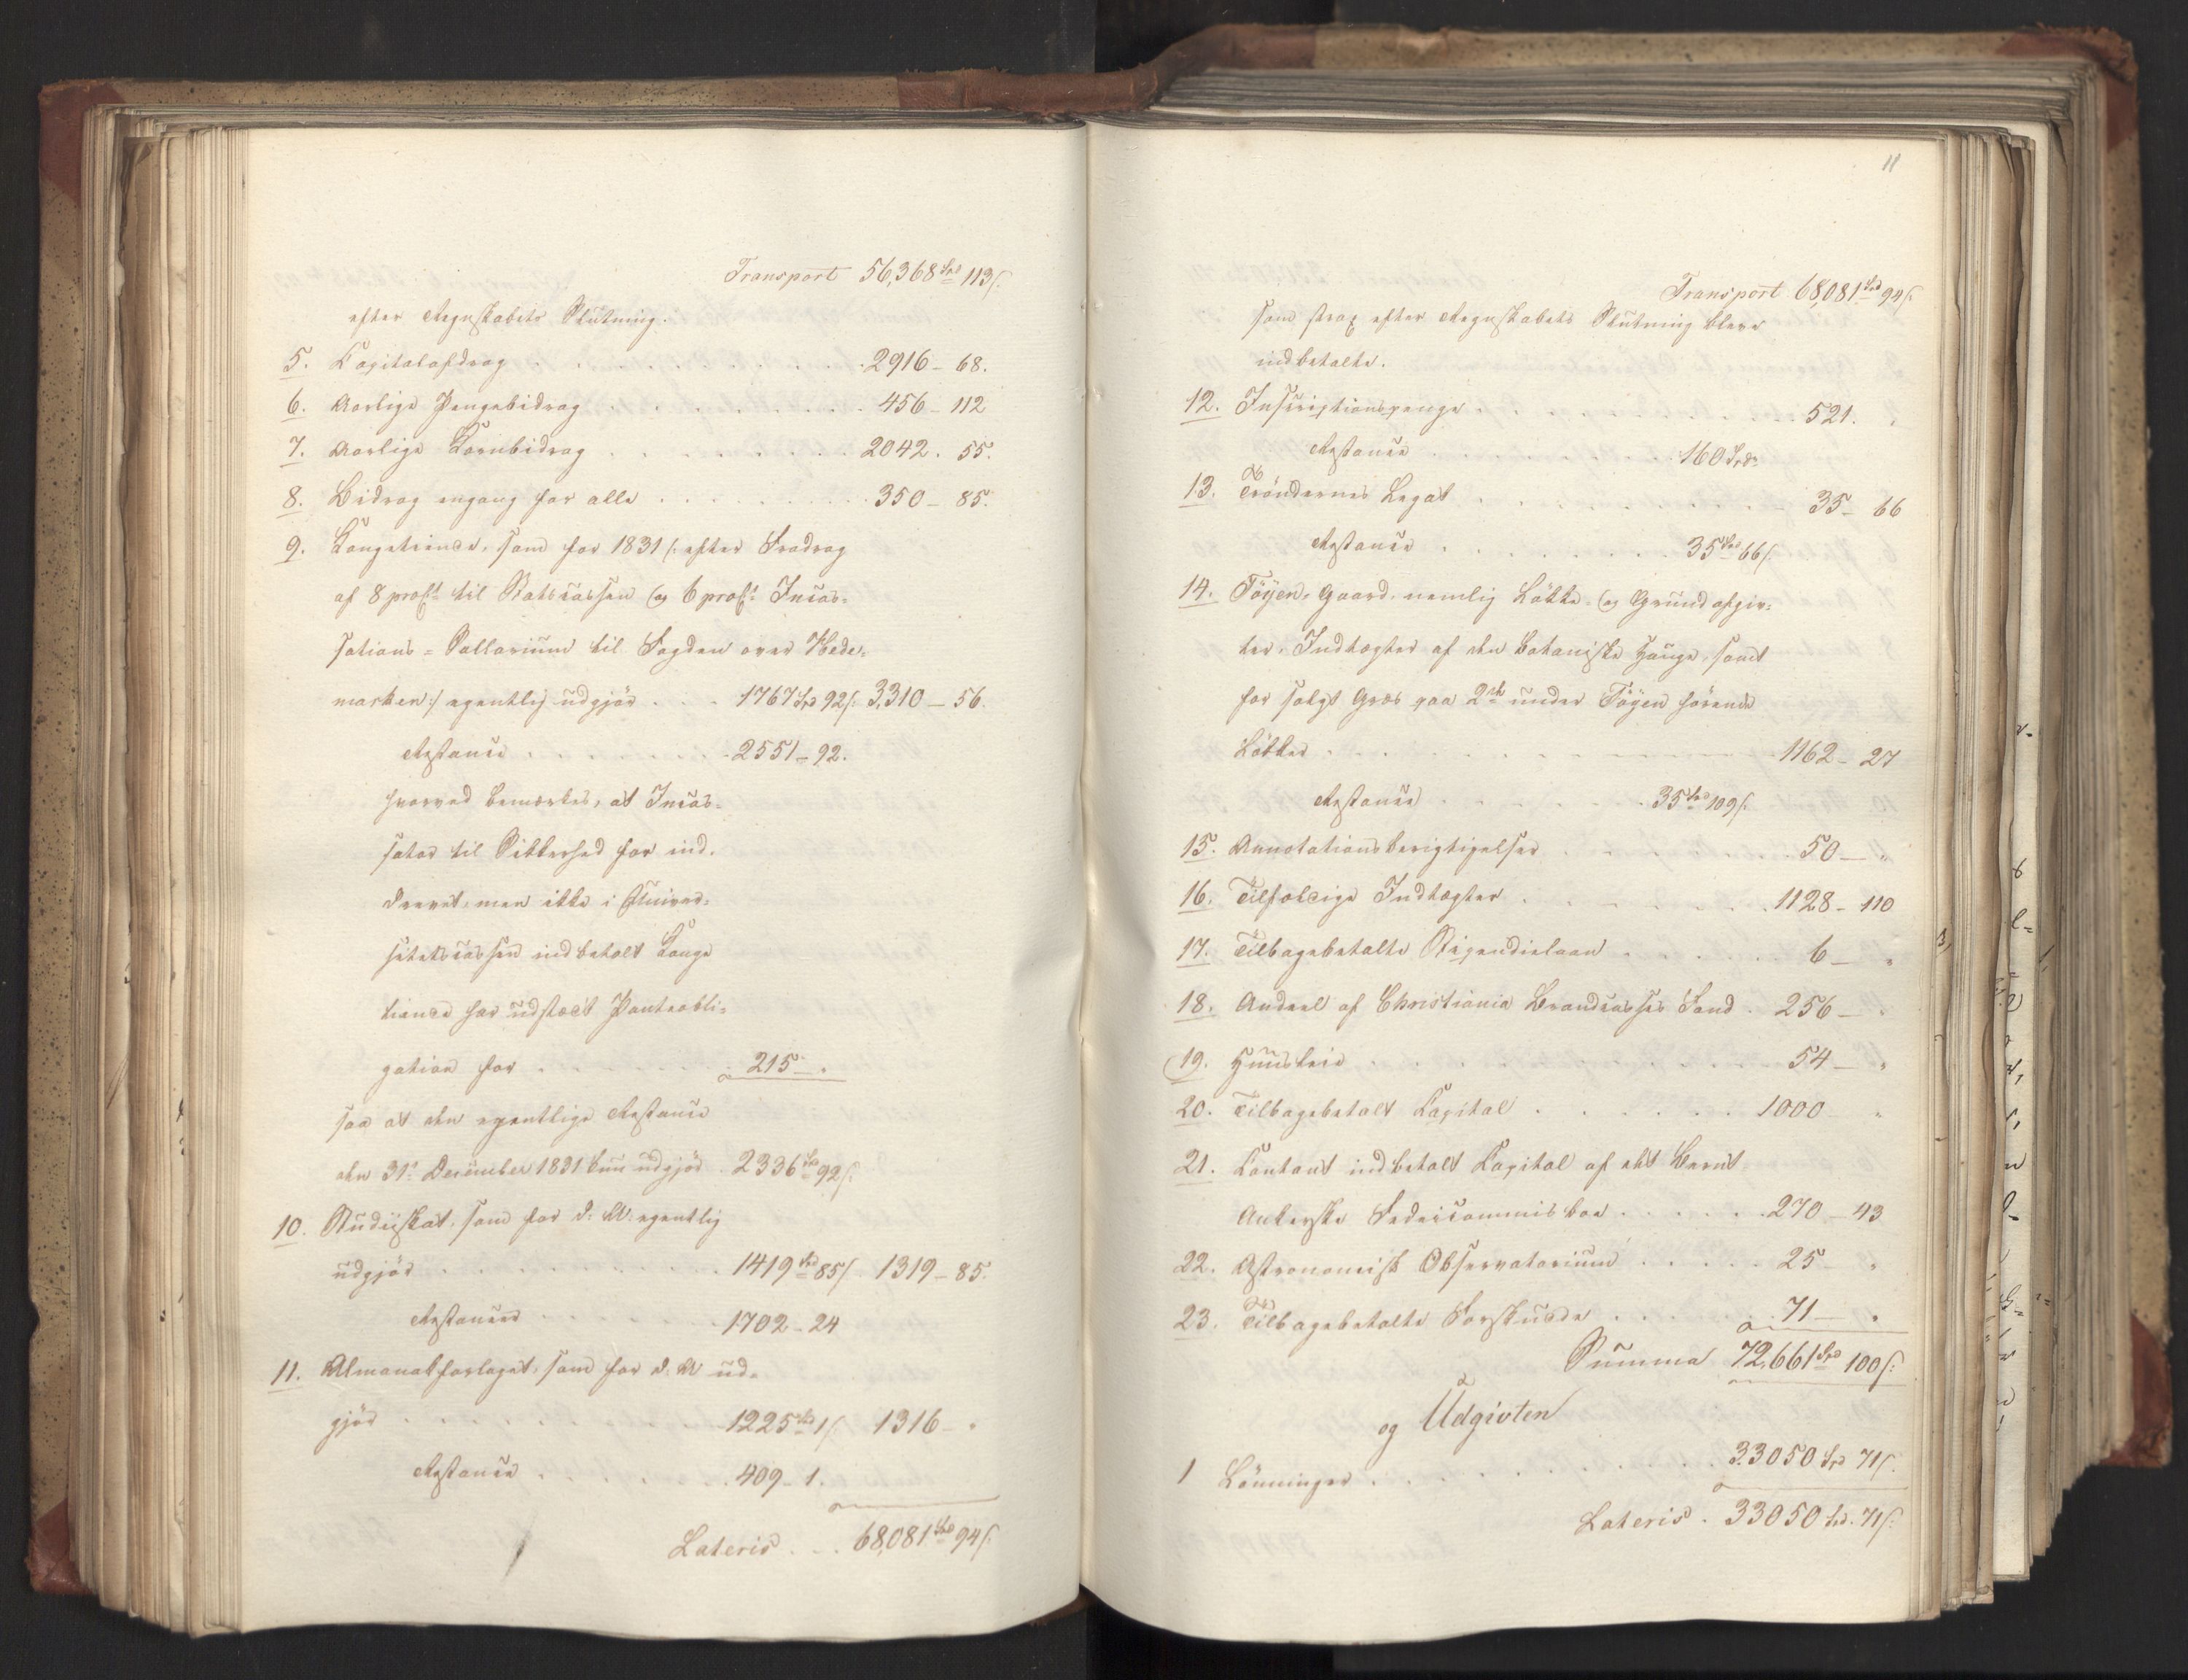 Transport 56,368 Spd 113 ß.
efter Regnskabets Slutning.
5. Capitalafdrag . . . 2916 - 68.
6. Aarlige Pengebidrag . . . 456 - 112
7. Aarlige Kornbidrag . . . 2042. 55.
8. Bidrag engang for alle . . . 350 - 85.
9. Kongetiende, som for 1831 /: efter Fradrag
af 8 proCt til Statscassen og 6 proCt Incas-
sations-Sallarium til Fogden over Hede-
marken :/ egentlig udgjør . . . 1767 Spd 92 ß. 3,310 - 56.
Restance . . . 2551 - 92.
hvorved bemærkes, at Incas-
sator til Sikkerhed for ind-
drevet, men ikke i Univer-
sitetscassen indbetalt Konge
tiende har udstædt Panteobli-
gation for . . . 215 - "
saa at den egentlige Restance
den 31te December 1831 kun udgjør 2336 Spd 92 ß.
10. Studiiskat, som for d: A: egentlig
udgjør . . . 1419 Spd 85 ß. 1319 - 85.
Restancer . . . 1702 - 24
11. Almanakforlaget, som for d. A. ud-
gjør . . . 1225 Spd 1 ß 1316 - "
Restance . . . 409 - 1.
Lateris . . . 68,081 Spd 94 ß.
11
Transport 68,081 Spd 94 ß.
som strax efter Regnskabets Slutning bleve
indbetalte.
12. Inscriptionspenge . . . 521. "
Restance . . . 160 Spd.
13. Tröndernes Legat . . . 35 - 66
Restance . . . 35 Spd 66 ß.
14. Töyen-Gaard, nemlig Løkke- og Grundafgiv-
ter, Indtægter af den botaniske Hauge, samt
for solgt Græs paa 2de under Töyen hørende
Løkker . . . 1162 - 27
Restance . . . 35 Spd 109 ß.
15. Annotationsberigtigelser . . . 50 - "
16. Tilfældige Indtægter . . . 1128 - 110
17. Tilbagebetalte Stipendielaan . . . 6 - "
18. Andeel af Christiania Brandcasses Fond . 256 - "
19. Huusleie . . . 54 - "
20. Tilbagebetalt Capital . . . 1000 - "
21. Contant indbetalt Capital af det Bernt
Ankerske Fideicommisboe . . . 270 - 43
22. Astronomisk Observatorium . . . 25 - "
23. Tilbagebetalte Forskudde . . . 71 - "
Summa 72,661 Spd 100 ß.
og Udgivten
1 Lönninger . . . 33050 Spd 71 ß.
Lateris . 33050 Spd. 71 ß.